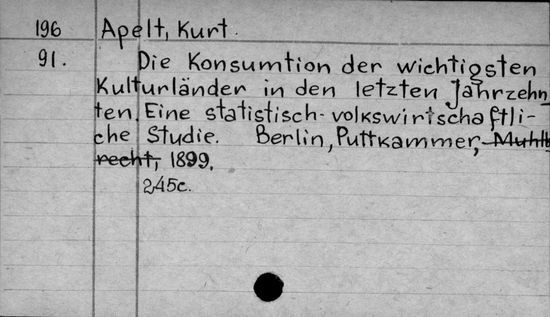 196 Apelt, Kurt.
91. Die Konsumtion der wichtigsten
Kulturländer in den letzten Jahrzehn
ten. Eine statistisch-volkswirtschaftli-
che Studie. Berlin, Puttkammer, Muhlb
recht, 1899.
245c.